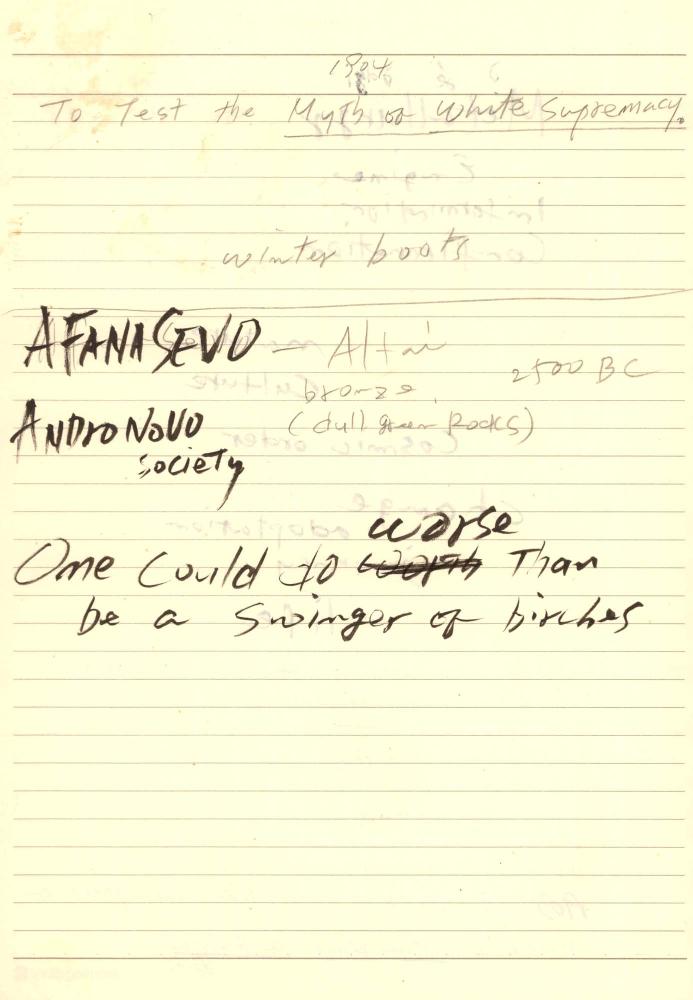 1904
To Test the Myth of White Supremacy.
winter boots
AFANASEVO - Altai
bronze, 2500 BC
ANDroNoVO (dull green Rocks)
society
worse
One could do worth Than
be a swinger of birches